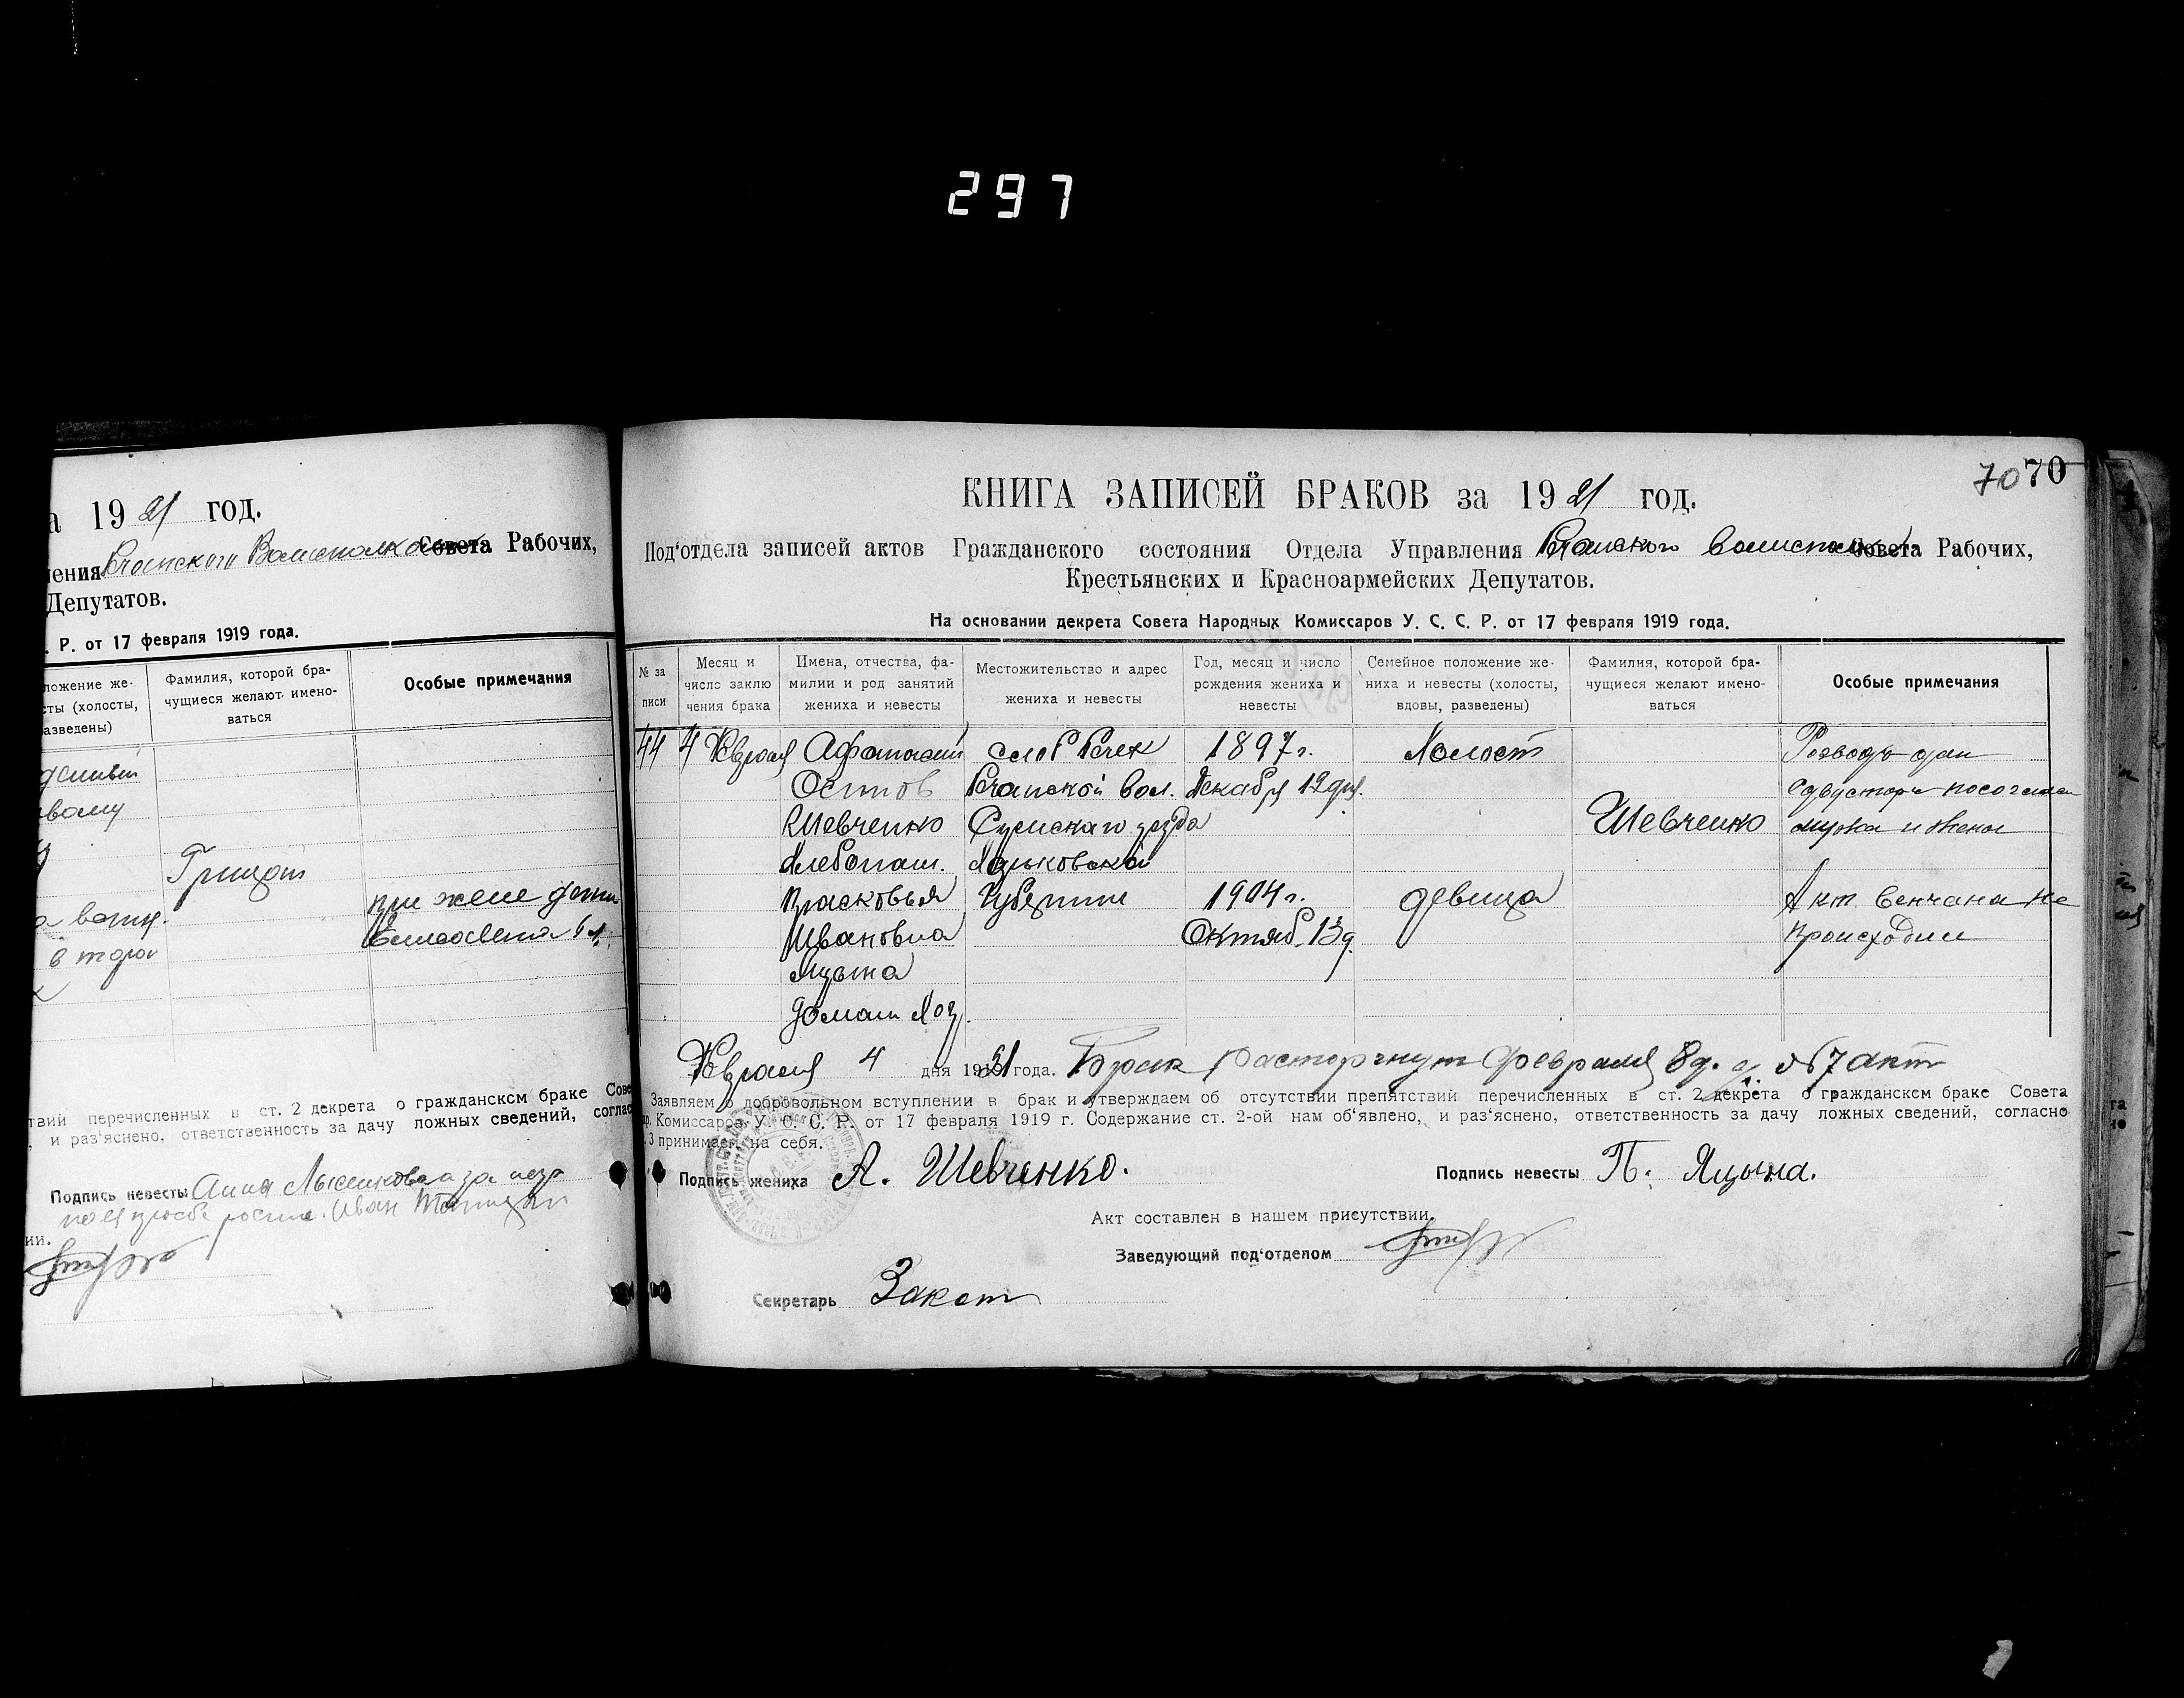 297
а 1921 год.
Совета Рабочих,
Депутатов.
. Р. от 17 февраля 1919 года.
ложение же-
сты (холосты,
азведены)
Фамилия, которой бра-
чущиеся желают имено-
ваться
Особые примечания
при жене
твий перечисленных в ст. 2 декрета о гражданском браке Сове
, и раз‘яснено, ответственность за дачу ложных сведений, соглас
Подпись невесты Анна
Иван
ии.
70 70
КНИГА ЗАПИСЕЙ БРАКОВ за 1921 год.
Под‘отдела записей актов Гражданского состояния Отдела Управления Совета Рабочих,
Крестьянских и Красноармейских Депутатов.
На основании декрета Совета Народных Комиссаров У. С. С. Р. от 17 февраля 1919 года.
№ за
писи
Месяц и
число заклю
чения брака
Имена, отчества, фа-
милии и род занятий
жениха и невесты
Местожительство и адрес
жениха и невесты
Год, месяц и число
рождения жениха и
невесты
Семейное положение же-
ниха и невесты (холосты,
вдовы, разведены)
Фамилия, которой бра-
чущиеся желают имено-
ваться
Особые примечания
44 4 Февраля Афанасий 1897 г. Холост
Осипов вол. Декабря 12 дня.
Шевченко Сумскаго уезда Шевченко мужа и жены
Хлебопаш. Харьковской
Прасковья Губернии 1904 г. девица Акт венчана не
Ивановна Октяб. 13 д. происходил
Яцына
домаш хоз.
Февраля 4 дня 1921 года. Брак расторгнут Февраля 8 д. 67 акт
Заявляем о добровольном вступлении в брак и утверждаем об отсутствии препятствий перечисленных в ст. 2 декрета о гражданском браке Совета
р. Комиссаров У. С. С. Р. от 17 февраля 1919 г. Содержание ст. 2-ой нам об‘явлено, и раз‘яснено, ответственность за дачу ложных сведений, согласно
. 3 принимаем на себя.
Подпись жениха А. Шевченко. Подпись невесты П. Яцына.
Акт составлен в нашем присутствии.
Заведующий под‘отделом
Секретарь